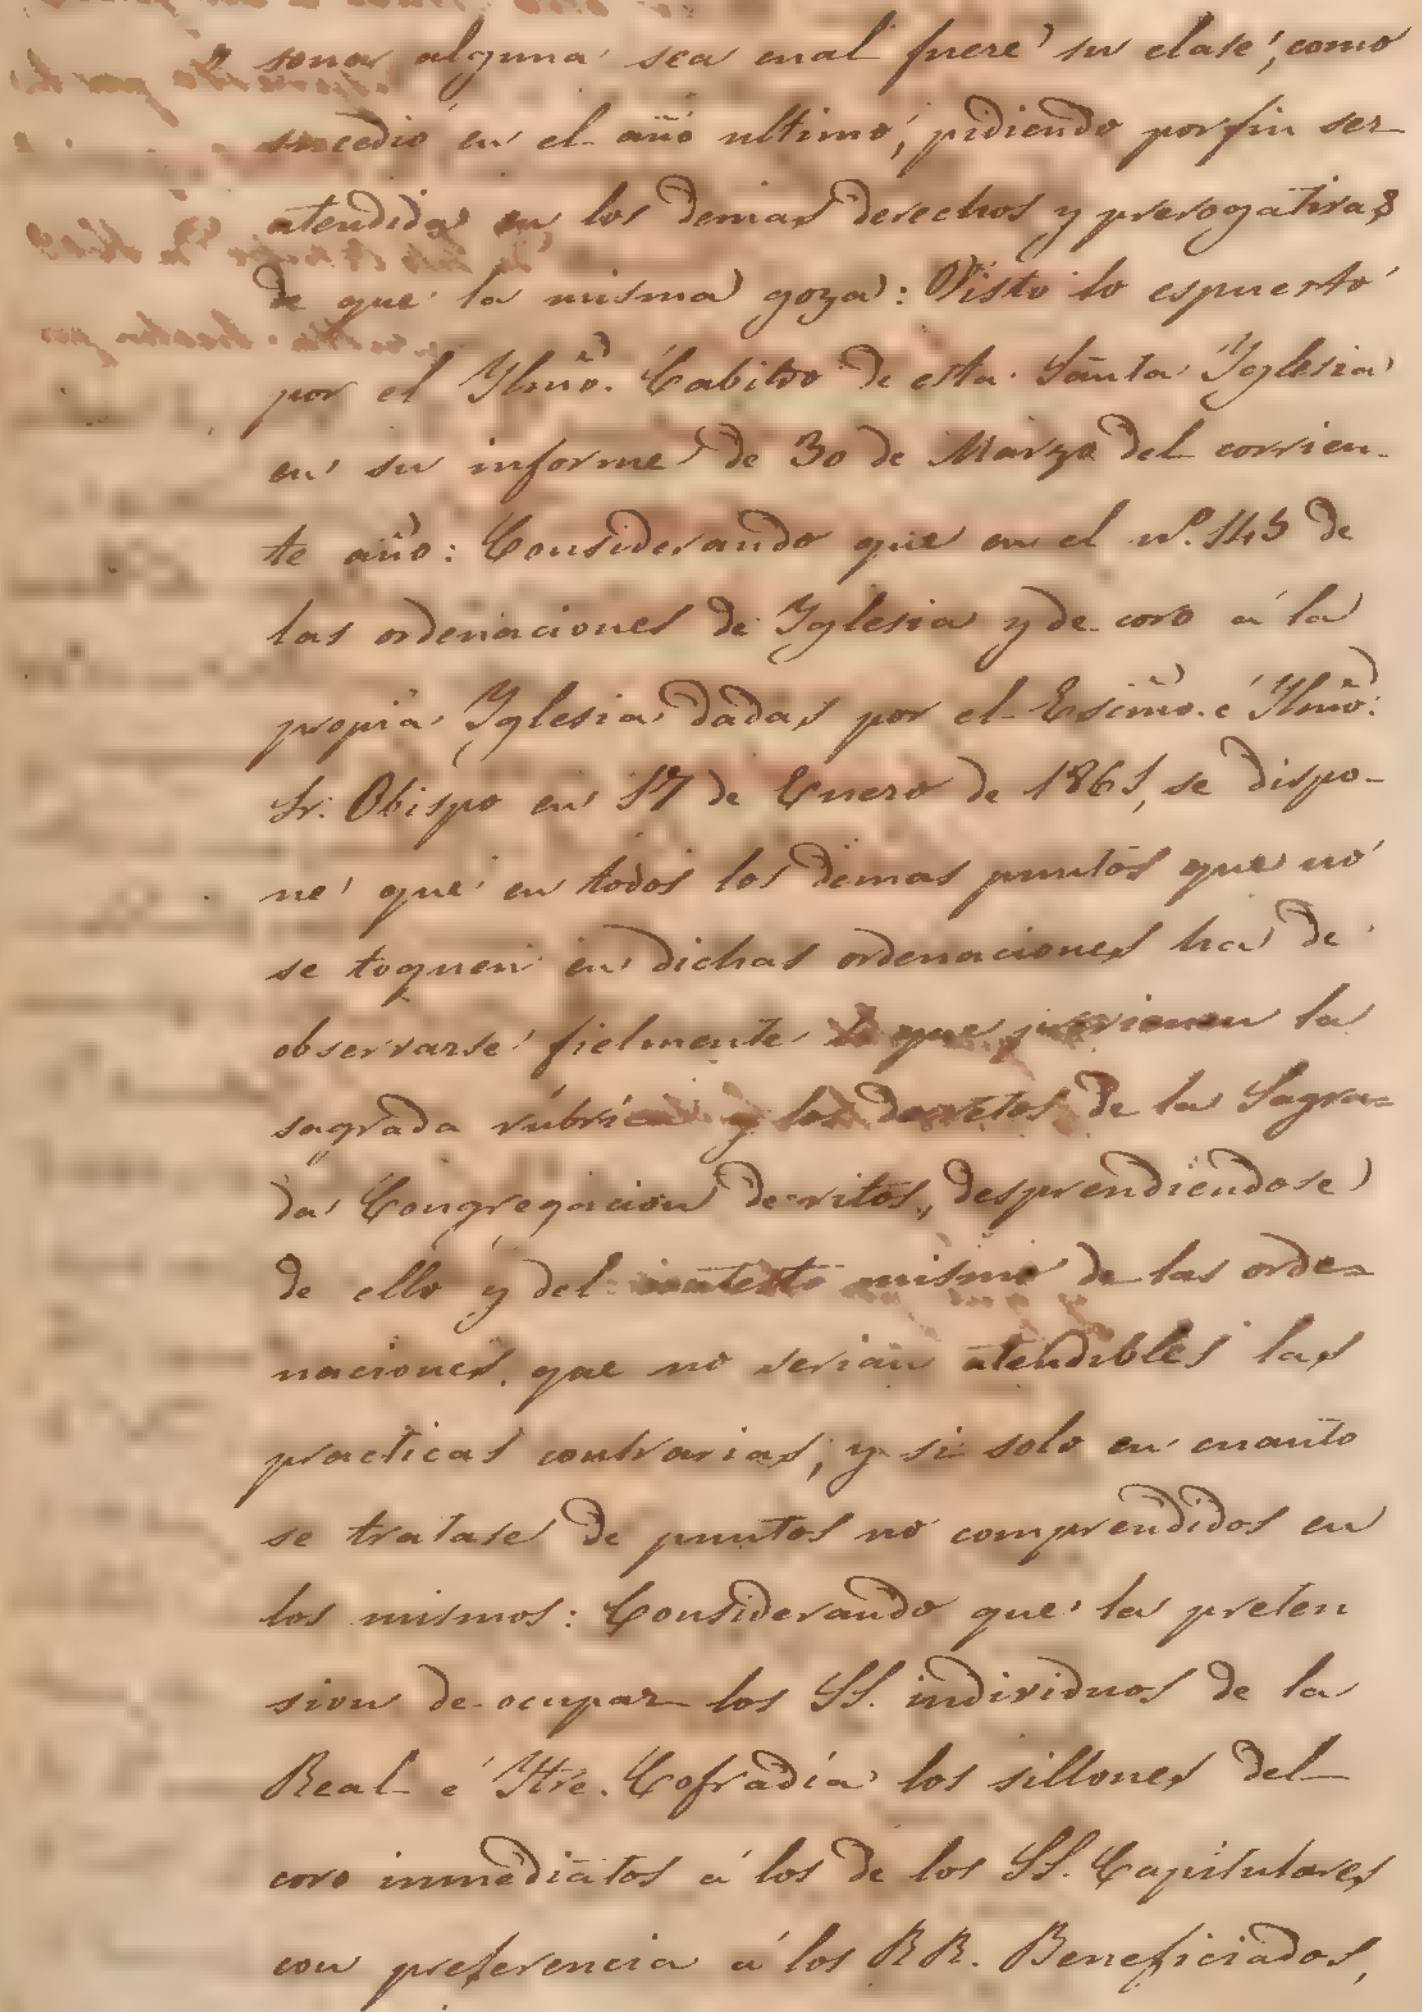 sona alguna sea cual fuere su clase, como
sucedió en el año ultimo, pidiendo por fin ser
atendida en los demas derechos y prerogativas
de que la misma goza: Visto lo espuesto
por el Ylmo. Cabildo de esta Santa Yglesia
en su informe de 30 de Marzo del corrien-
te año: Considerando que en el nº. 145 de
las ordenaciones de Yglesia y de coro á la
propia Yglesia dadas por el Escmo. é Ylmo.
Sr. Obispo en 17 de Enero de 1861, se dispo-
ne que en todos los demas puntos que no
se toquen en dichas ordenaciones ha de
observarse fielmente lo que previenen la
sagrada rúbrica y los decretos de la Sagra=
da Congregacion de ritos, desprendiendose
de ello y del contesto mismo de las orde=
naciones, que no serian atendibles las
practicas contrarias, y si solo en cuanto
se tratase de puntos no comprendidos en
los mismos: Considerando que la preten
sion de ocupar los SS. individuos de la
Real é Ytre. Cofradía los sillones del
coro inmediatos á los de los SS. Capitulares
con preferencia á los RR. Beneficiados,